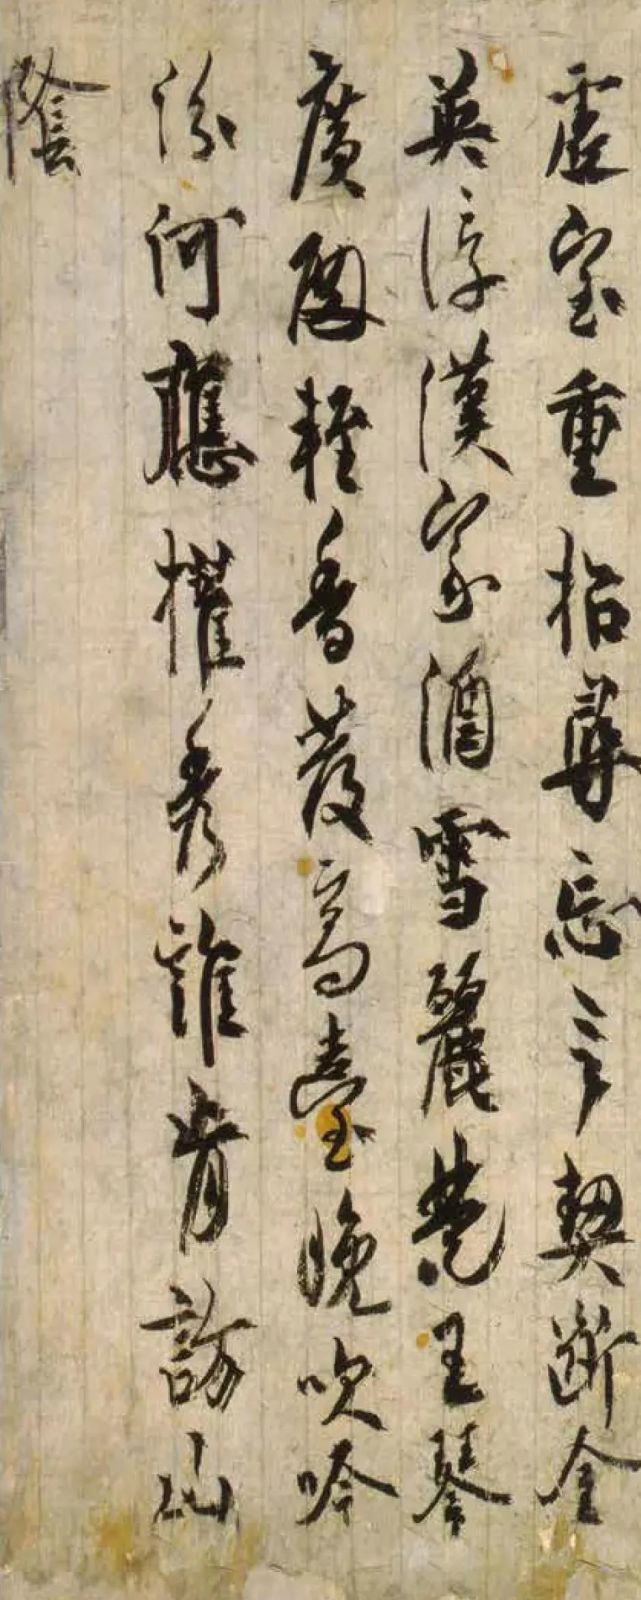 虛室重招尋忘言契断金
英浮漢家酒雪麗楚王琴
廣殿輕香發高臺晚吹吟
汾河應擢秀誰肯訪山
陰